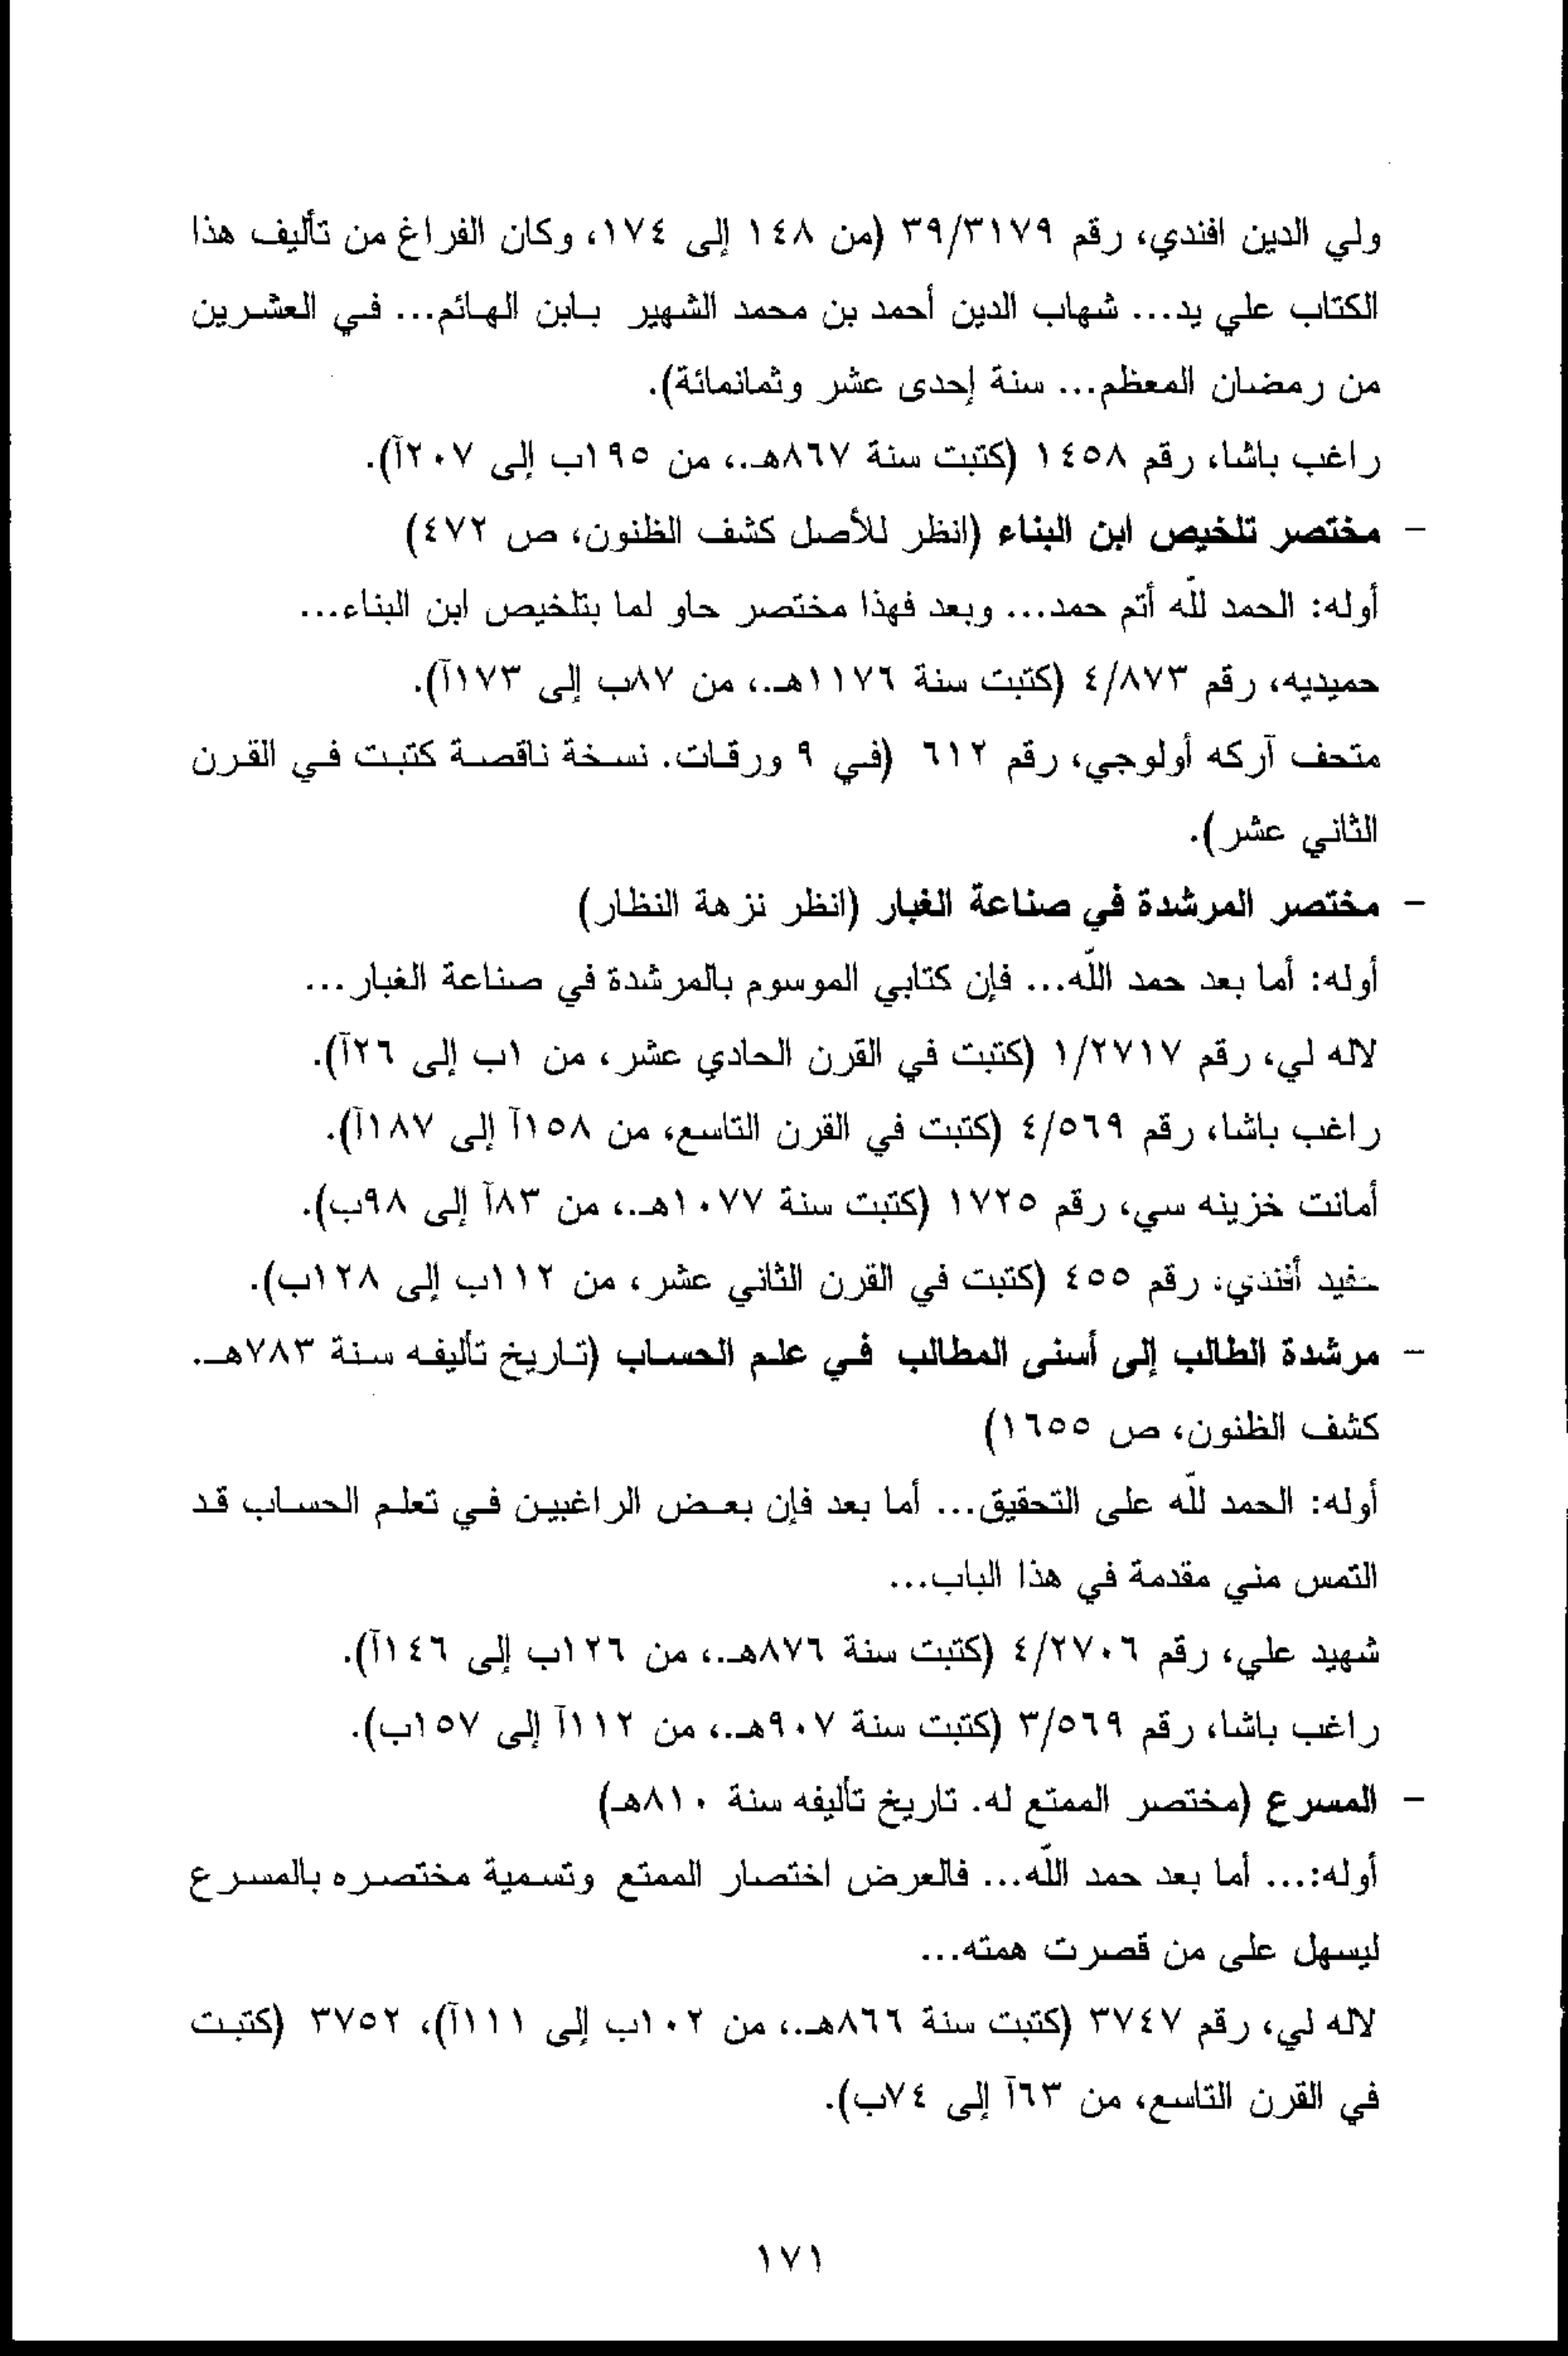 ولي الدين افندي، رقم ٣٩/٣١٧٩ (من ١٤٨ إلى ١٧٤، وكان الفراغ من تأليف هذا
الكتاب علي يد... شهاب الدين أحمد بن محمد الشهير بابن الهائم... في العشرين
من رمضان المعظم... سنة إحدى عشر وثمانمائة).
راغب باشا، رقم ١٤٥٨ (كتبت سنة ٨٦٧هـ.، من ١٩٥ب إلى ٢٠٧آ).
- مختصر تلخيص ابن البناء (انظر للأصل كشف الظنون، ص ٤٧٢)
أوله: الحمد للّه أتم حمد... وبعد فهذا مختصر حاو لما بتلخيص ابن البناء...
حميديه، رقم ٤/٨٧٣ (كتبت سنة ١١٧٦هـ.، من ٨٧ب إلى ١٧٣آ).
متحف آركه أولوجي، رقم ٦١٢ (في ٩ ورقات. نسخة ناقصة كتبت في القرن
الثاني عشر).
- مختصر المرشدة في صناعة الغبار (انظر نزهة النظار)
أوله: أما بعد حمد اللّه... فإن كتابي الموسوم بالمرشدة في صناعة الغبار...
لاله لي، رقم ١/٢٧١٧ (كتبت في القرن الحادي عشر، من ١ب إلى ٢٦آ).
راغب باشا، رقم ٤/٥٦٩ (كتبت في القرن التاسع، من ١٥٨آ إلى ١٨٧آ).
أمانت خزينه سي، رقم ١٧٢٥ (كتبت سنة ١٠٧٧هـ.، من ٨٣آ إلى ٩٨ب).
حفيد أفندي، رقم ٤٥٥ (كتبت في القرن الثاني عشر، من ١١٢ب إلى ١٢٨ب).
- مرشدة الطالب إلى أسنى المطالب في علم الحساب (تاريخ تأليفه سنة ٧٨٣هـ.
كشف الظنون، ص ١٦٥٥)
أوله: الحمد للّه على التحقيق... أما بعد فإن بعض الراغبين في تعلم الحساب قد
التمس مني مقدمة في هذا الباب...
شهيد علي، رقم ٤/٢٧٠٦ (كتبت سنة ٨٧٦هـ.، من ١٢٦ب إلى ١٤٦آ).
راغب باشا، رقم ٣/٥٦٩ (كتبت سنة ٩٠٧هـ.، من ١١٢آ إلى ١٥٧ب).
- المسرع (مختصر الممتع له. تاريخ تأليفه سنة ٨١٠هـ)
أوله:... أما بعد حمد اللّه... فالعرض اختصار الممتع وتسمية مختصره بالمسرع
ليسهل على من قصرت همته...
لاله لي، رقم ٣٧٤٧ (كتبت سنة ٨٦٦هـ.، من ١٠٢ب إلى ١١١آ)، ٣٧٥٢ (كتبت
في القرن التاسع، من ٦٣آ إلى ٧٤ب).
١٧١